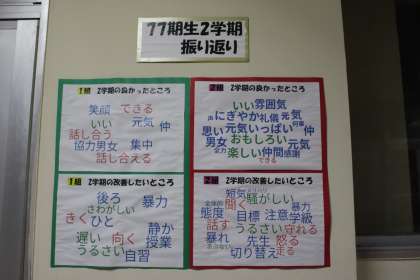 77期生2学期
振り返り
1組 2学期の良かったところ
笑顔 できる
いい 元気 仲
話し合う
協力男女 集中
話し合える
2組 2学期の良かったところ
いい 雰囲気
声 にぎやか 礼儀 元気
思い 元気いっぱい 仲
男女 おもしろい
全力 楽しい 仲間 感謝
できる
1組 2学期の改善したいところ
後ろ 暴力
さわがしい
きく ひと 静か
遅い 向く 授業
うるさい 自習
2組 2学期の改善したいところ
短気 騒がしい
全体的 聞く 暴力
態度 目標 注意 学級
話す うるさい 守れる
暴れ 先生 怒る
切り替え 走る